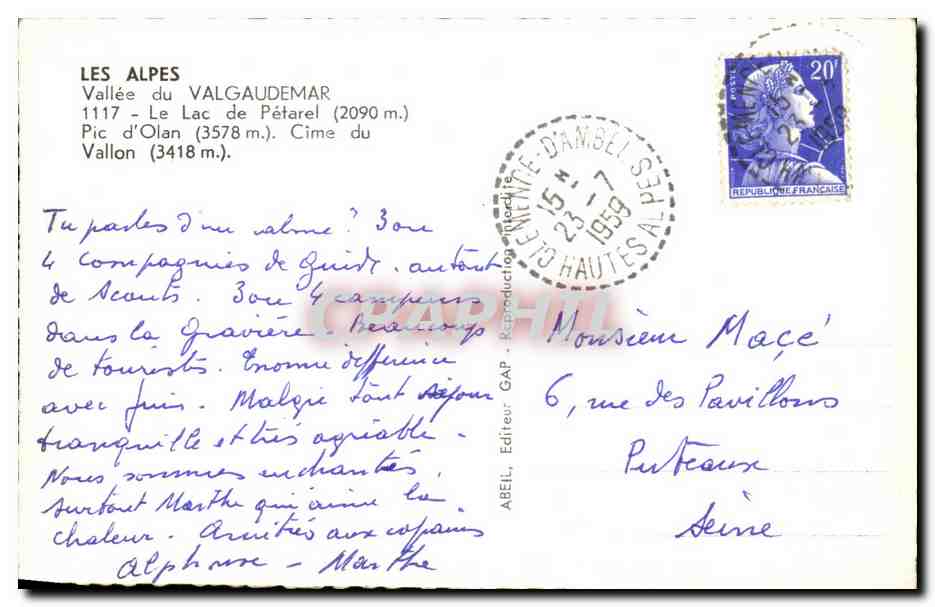 LES ALPES
Vallée du VALGAUDEMAR
1117 - Le Lac de Pétarel (2090 m.)
Pic d'Olan (3578 m.). Cime du
Vallon (3418 m.).
Tu parles d'un calme ? 3 ou
4 compagnies de Guides. autant
de Scouts. 3 ou 4 campeurs
dans la Gravière. Beaucoup
de touristes. Enorme différence
avec Juin. Malgré tout séjour
tranquille et très agréable.
Nous sommes enchantés.
surtout Marthe qui aime la
chaleur. Amitiés aux copains
Alphonse - Marthe
ABEIL, Editeur GAP - Reproduction interdite
CLEMENCE-D'AMBEL
15 H
23 - 7
1959
HAUTES ALPES
POSTES
20F
REPUBLIQUE FRANÇAISE
Monsieur Maçé
6, rue des Pavillons
Puteaux
Seine
CPAPHIL